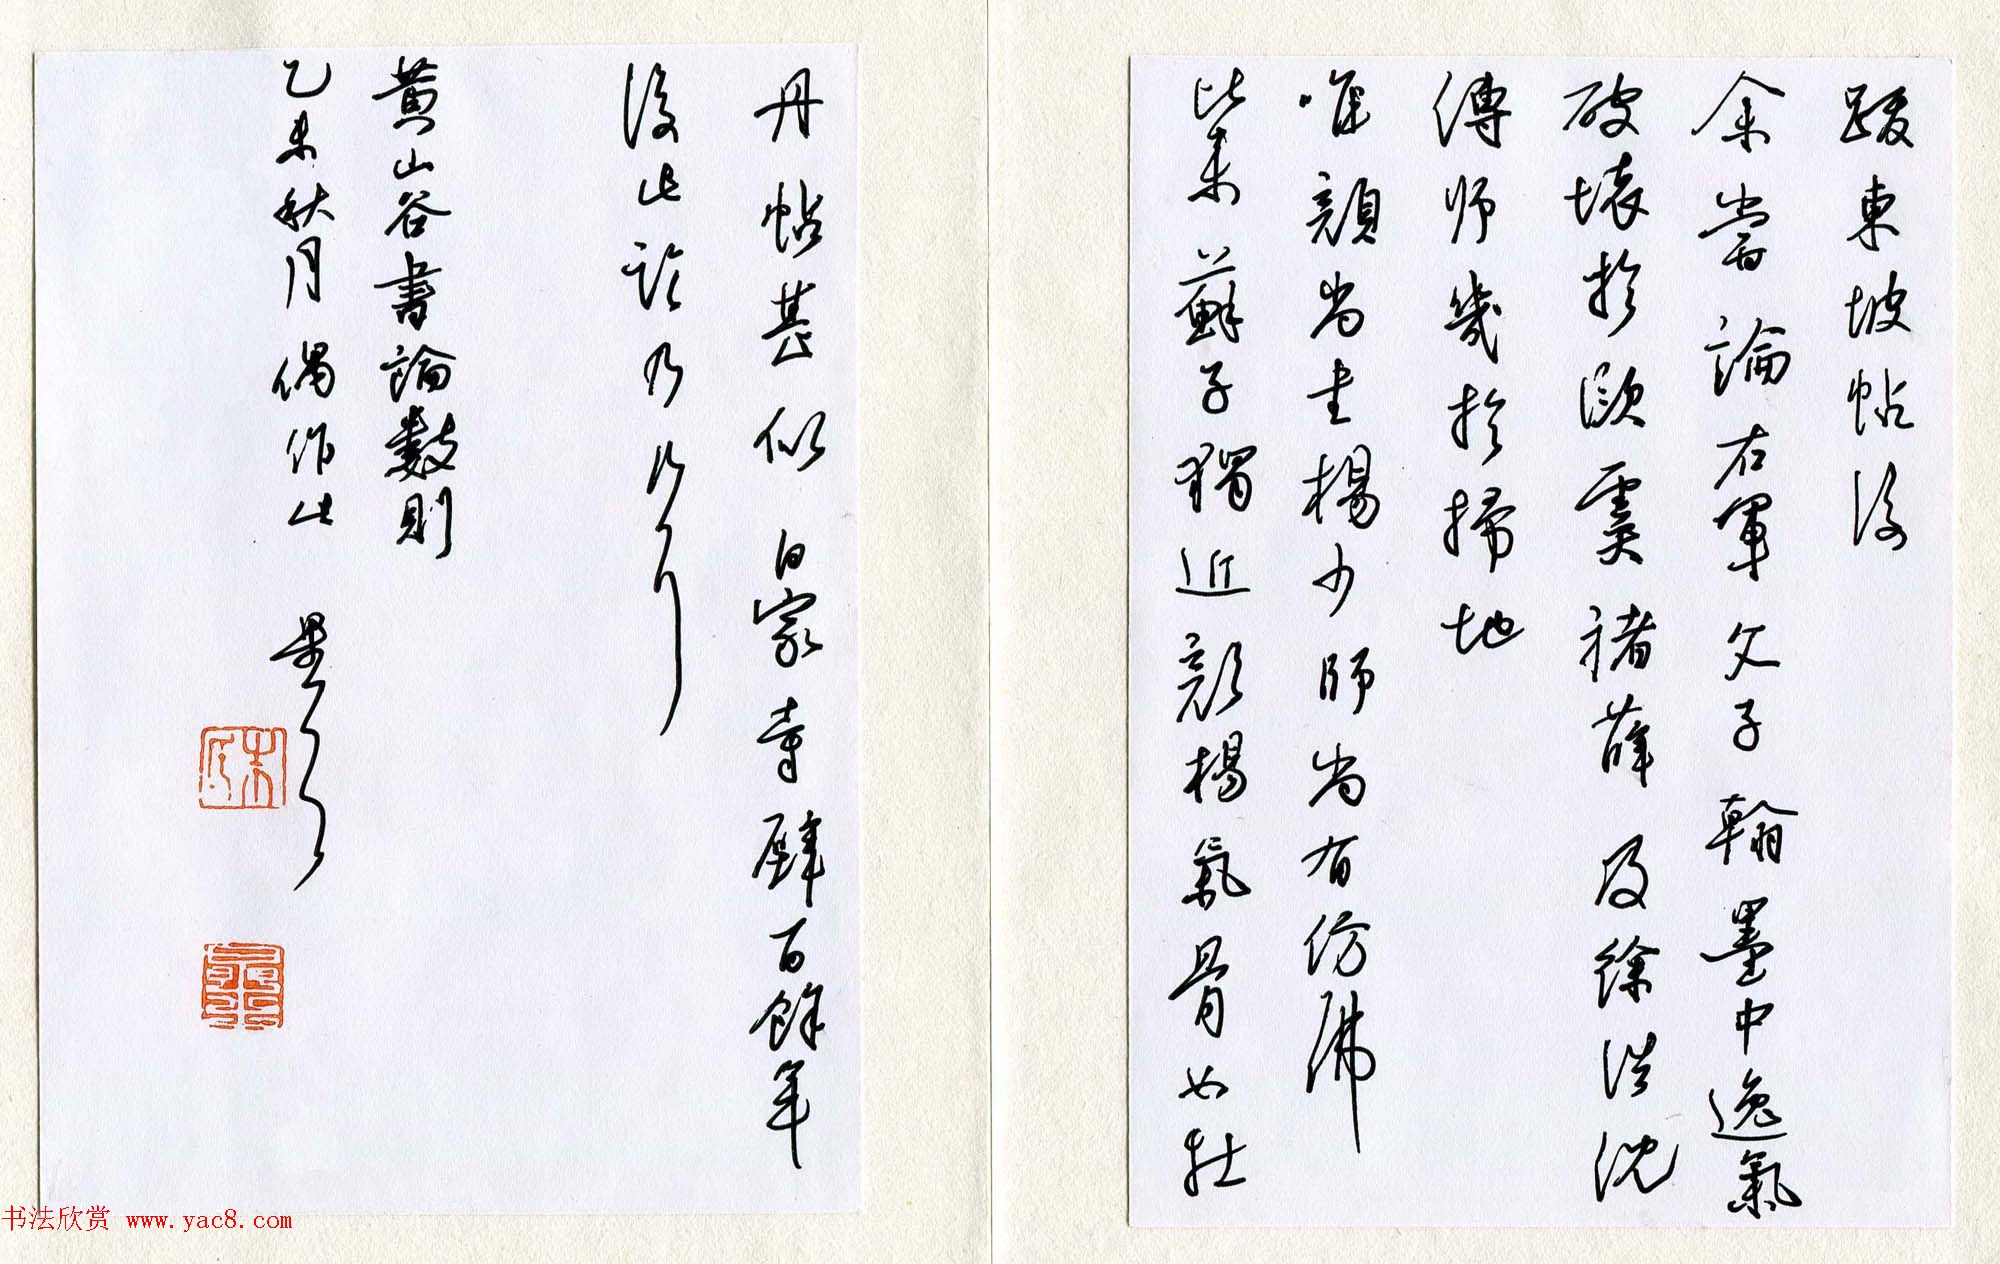 跋東坡帖後
余嘗論右軍父子翰墨中逸氣
破壞於歐虞褚薛及徐浩沈
傳师幾於掃地
唯顔尚书楊少師尚有仿佛
比来蘇子獨近顔楊氣骨如牡
丹帖甚似白家寺壁百餘年
後此论乃行
黄山谷書論數則
乙未秋月偶作此
书法欣赏 www.yac8.com